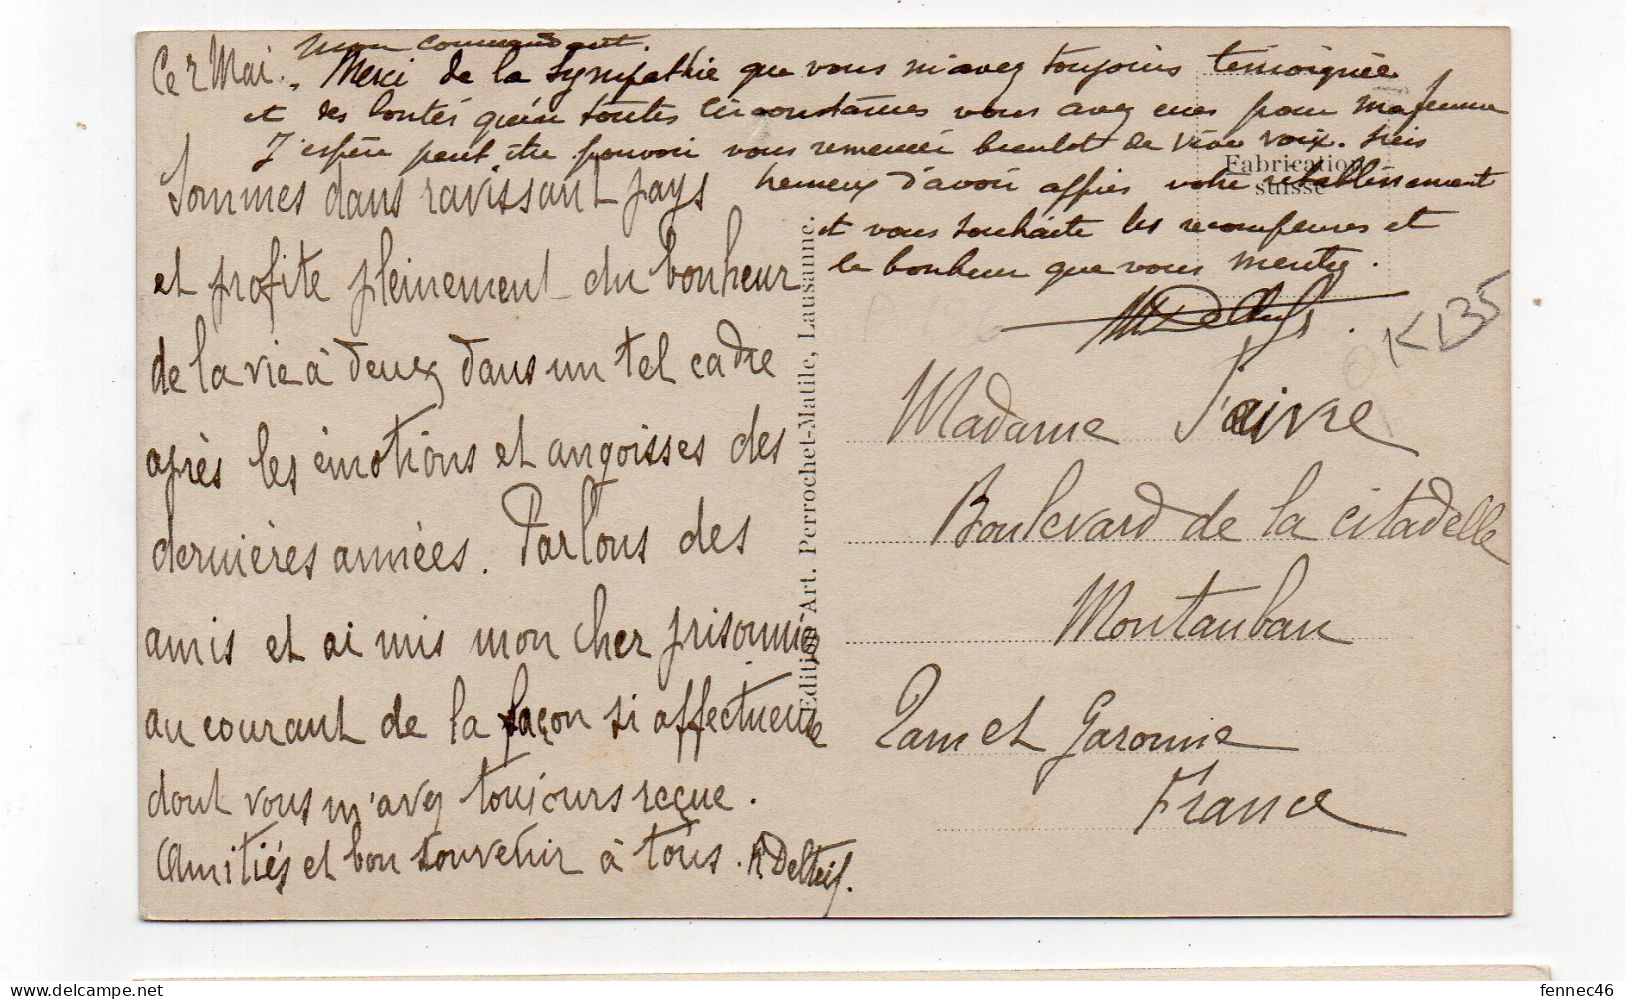 Ce 2 Mai.
Mon commandant.
Merci de la sympathie que vous m'avez toujours témoignée
et des bontés qu'en toutes circonstances vous avez eues pour ma femme
J'espère peut être pouvoir vous remercier bientot de vive voix. Suis
heureux d'avoir appris votre rétablissement
et vous souhaite les recompenses et
le bonheur que vous meritez.
Sommes dans ravissant pays
et profite pleinement du bonheur
de la vie à deux dans un tel cadre
après les émotions et angoisses des
dernières années. Parlons des
amis et ai mis mon cher prisonnier
au courant de la façon si affectueuse
dont vous m'avez toujours reçue.
Amitiés et bon souvenir à tous. R Delteil.
Fabrication
suisse
Edition-Art. Perrochet-Matile, Lausanne.
K 135
Madame Faivre
Boulevard de la citadelle
Montauban
Tarn et Garonne
France
fennec46